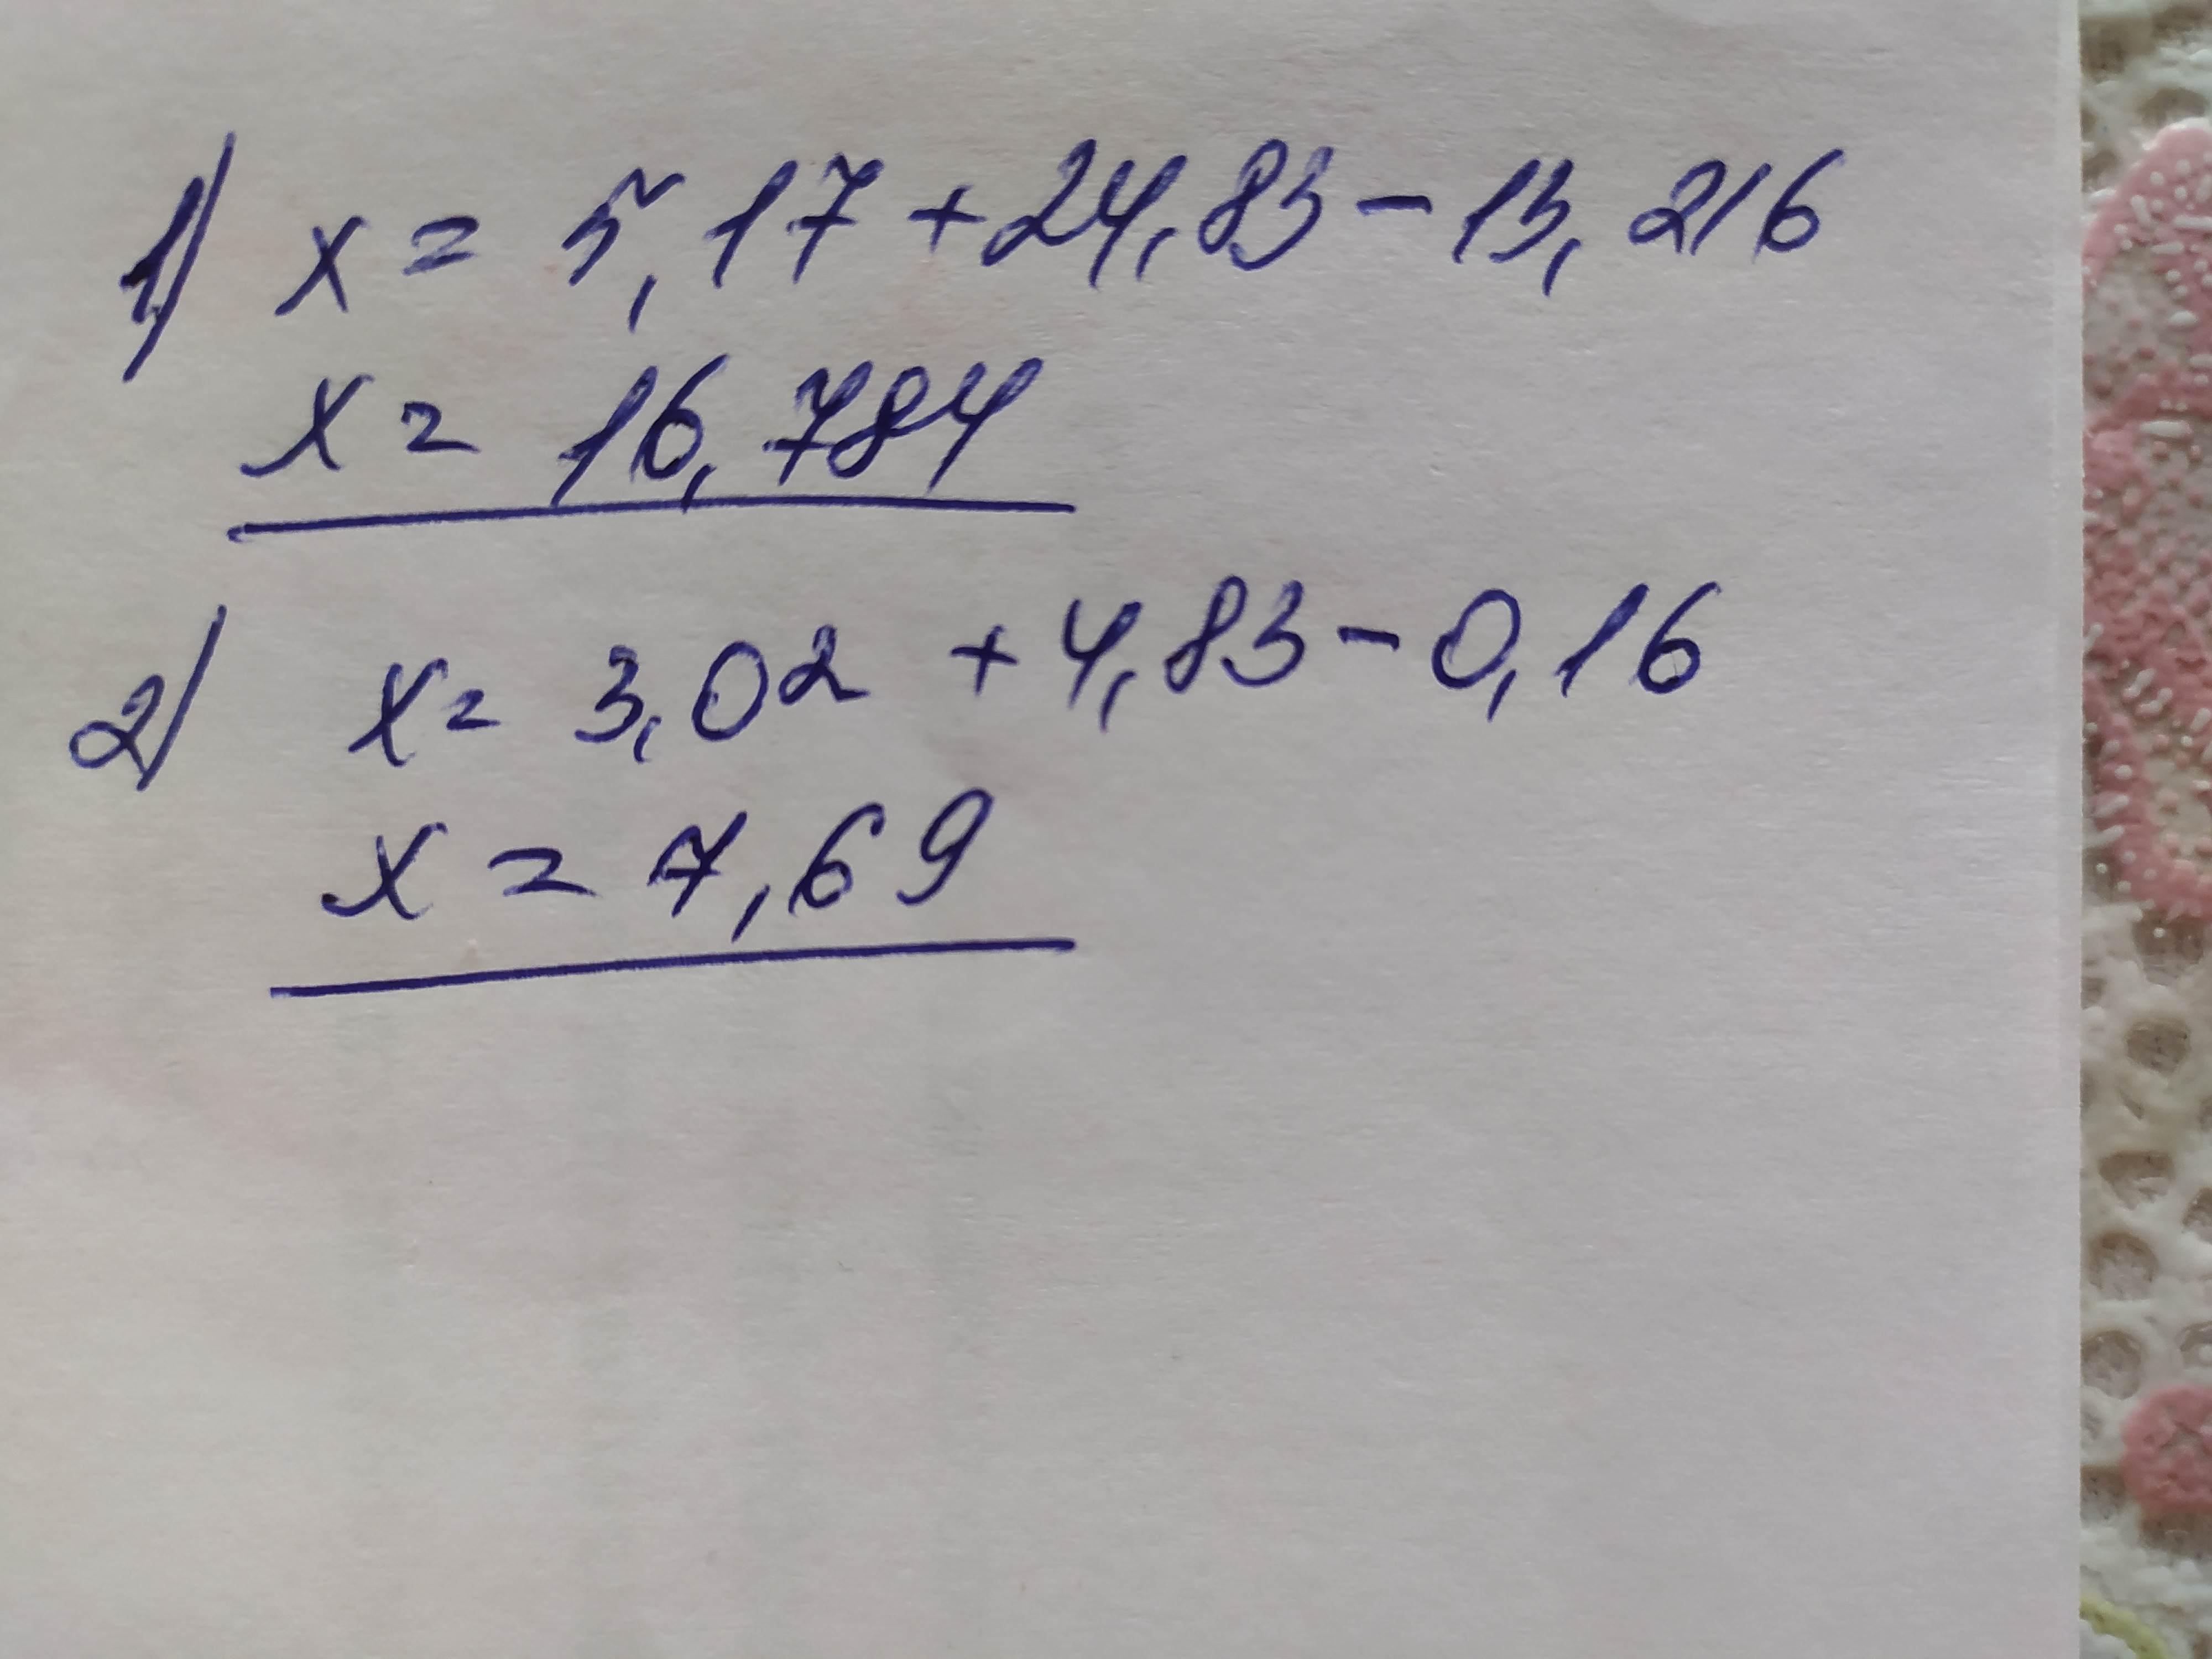 1) x = 5,17 + 24,83 - 13,216
x = 16,784
2) x = 3,02 + 4,83 - 0,16
x = 7,69